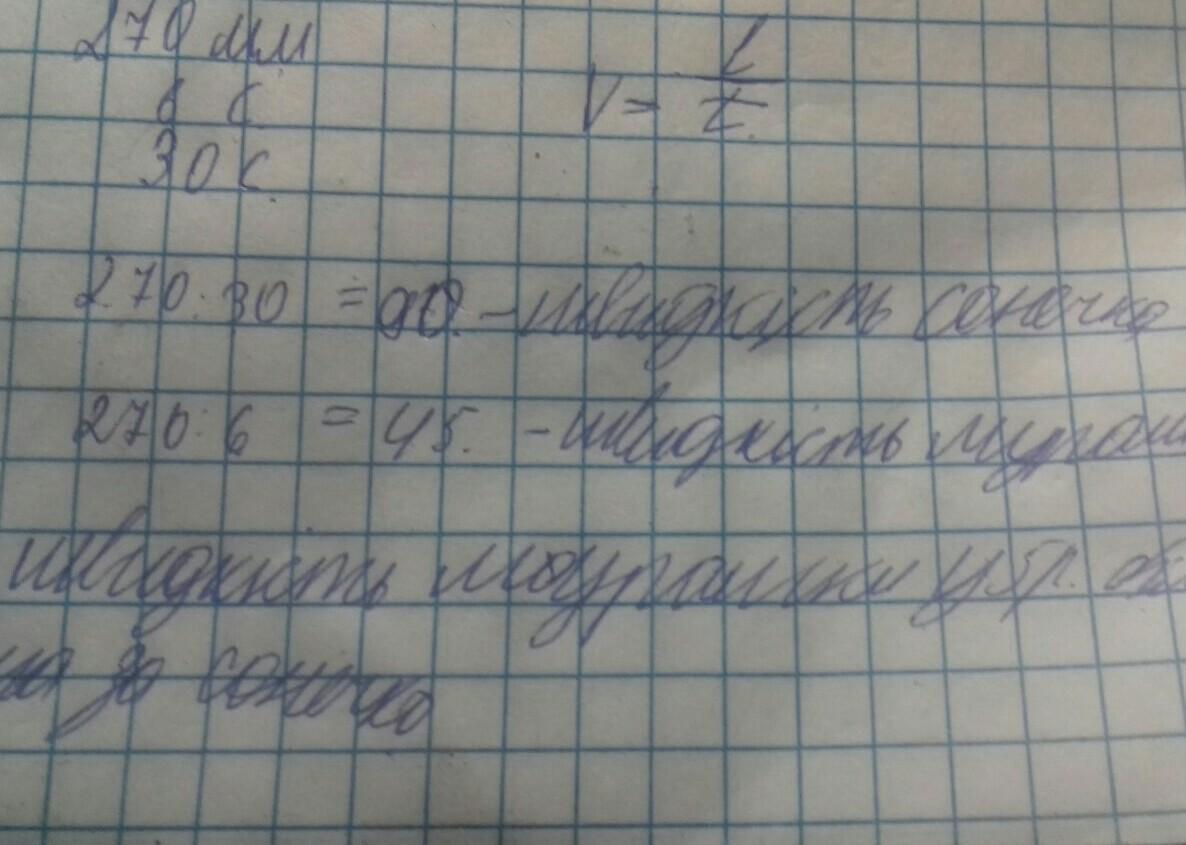 270 мм
6 с
30 с
V = L
t
270 : 30 = 90. - швидкість сонечко
270 : 6 = 45. - швидкість мураш
швидкість мурашки у 5 р.
за сонечко